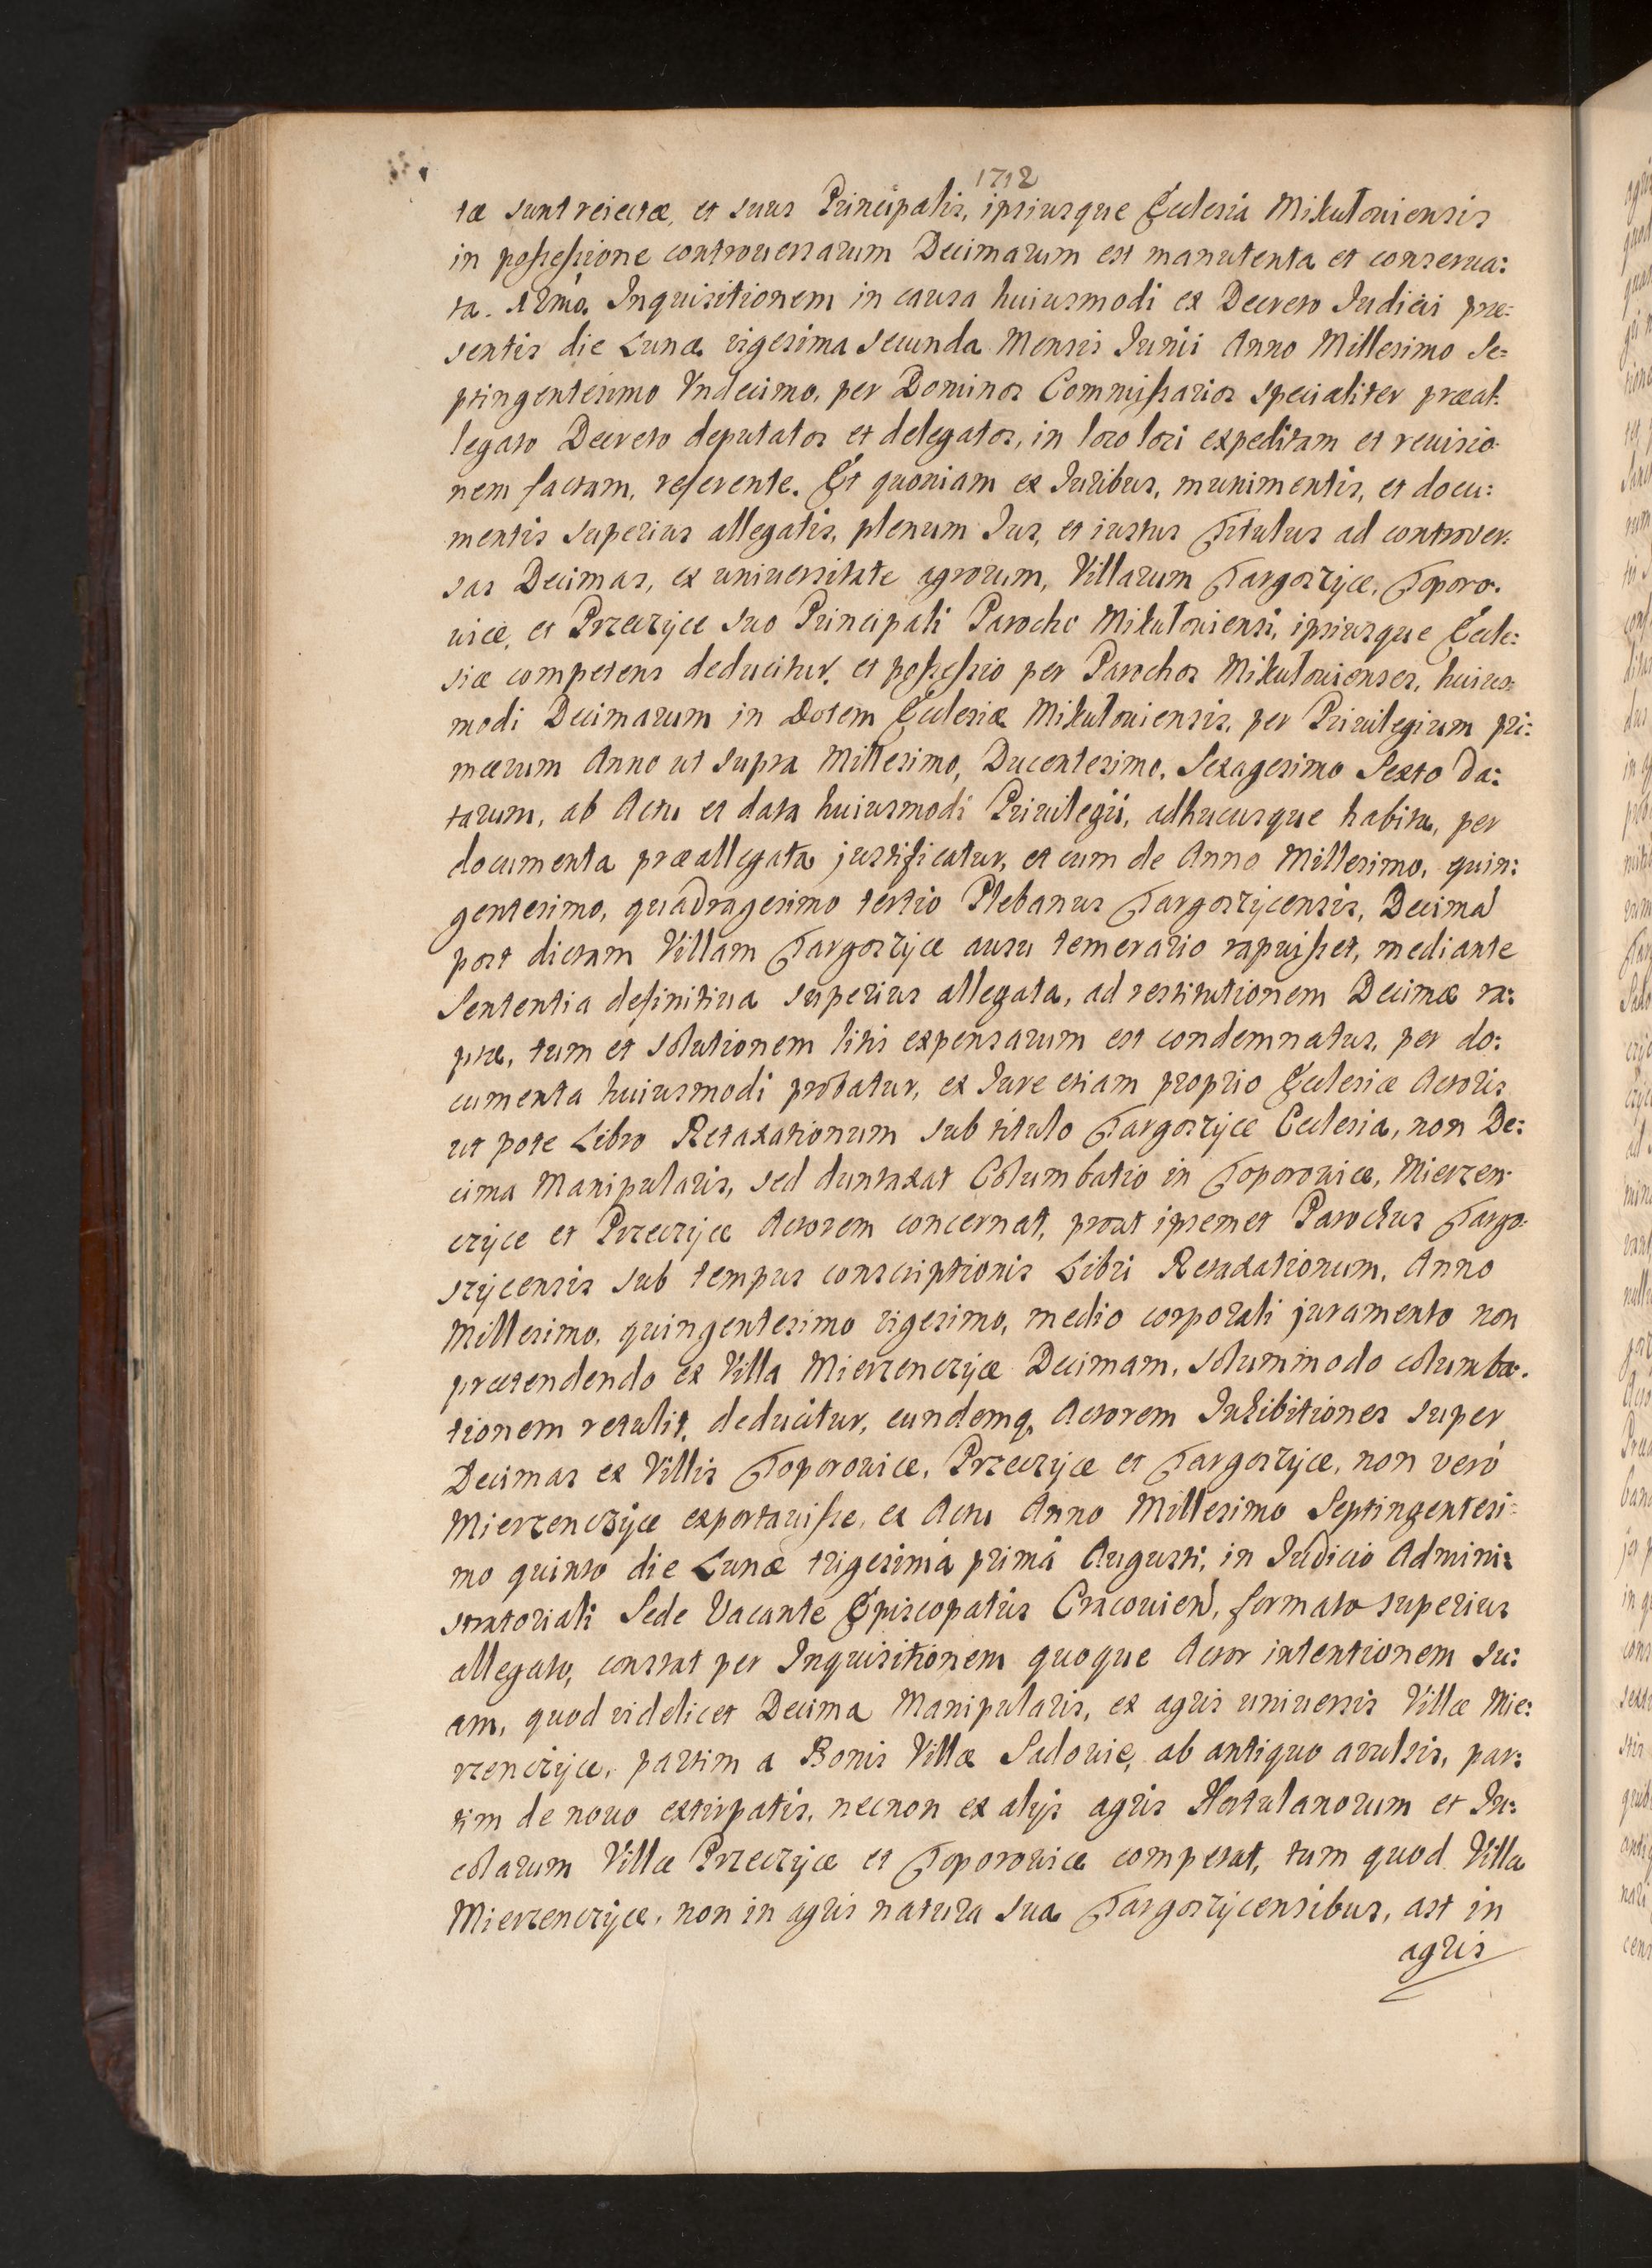 1712
tæ sunt reiectæ, et suus Principalis, ipsiusque Ecclesia Mikuloviensis
in possessione controuersarum Decimarum est manutenta et conserua:
ta. 12mo. Inquisitionem in causa huiusmodi ex Decreto Iudicii præ:
sentis die Lunæ vigesima secunda Mensis Iunii Anno Millesimo Se:
ptingentesimo Vndecimo, per Dominos Commissarios specialiter præal:
legato Decreto deputatos et delegatos, in loco loci expeditam et reuisio:
nem factam, referente. Et quoniam ex Iuribus, munimentis, et docu:
mentis superius allegatis, plenum Ius, et iustus Titulus ad controver:
sas Decimas, ex uniuersitate agrorum, Villarum Targoszyce, Toporo:
wice, et Przeczyce suo Principali Parocho Mikuloviensi, ipsiusque Eccle:
siæ competens deducitur, et possessio per Parochos Mikulovienses, huius:
modi Decimarum in Dotem Ecclesiæ Mikuloviensis, per Priuilegium pri:
mævum Anno ut supra Millesimo, Ducentesimo, Sexagesimo Sexto da:
tarum, ab Actu et data huiusmodi Priuilegii, adhucusque habita, per
documenta præallegata justificatur, et cum de Anno Millesimo, quin:
gentesimo, quadragesimo tertio Plebanus Targoszycensis, Decimā
post dictam Villam Targoszyce ausu temerario rapuisset, mediante
Sententia definitiua superius allegata, ad restitutionem Decimæ ra:
ptæ, tum et solutionem litis expensarum est condemnatus, per do:
cumenta huiusmodi probatur, ex Iure etiam proprio Ecclesiæ Actoris
ut pote Libro Retaxationum sub titulo Targoszyce Ecclesia, non De:
cima Manipularis, sed duntaxat Columbatio in Toporowice, Mierzen:
czyce et Przeczyce Actorem concernat, prout ipsemet Parochus Targo:
szycensis sub tempus conscriptionis Libri Retaxationum, Anno
Millesimo, quingentesimo vigesimo, medio corporali juramento non
prætendendo ex Villa Mierzenczyce Decimam, solummodo columba:
tionem retulit, deducitur, eundemq, Actorem Inhibitiones super
Decimas ex Villis Toporowice, Przeczyce et Targoszyce, non verò
Mierzenczyce exportavisse, ex Actu Anno Millesimo Septingentesi:
mo quinto die Lunæ trigesimâ primâ Augusti, in Iudicio Admini:
stratoriali Sede Vacante Episcopatûs Cracovien, formato superius
allegato, constat per Inquisitionem quoque Actor intentionem su:
am, quod videlicet Decima Manipularis, ex agris uniuersis Villæ Mie:
rzenczyce, partim a Bonis Villæ Sadowie, ab antiquo avulsis, par:
tim de nouo extirpatis, necnon ex alijs agris Hortulanorum et In:
colarum Villæ Przeczyce et Toporowice competat, tum quod Villa
Mierzenczyce, non in agris natura sua Targoszycensibus, ast in
agris